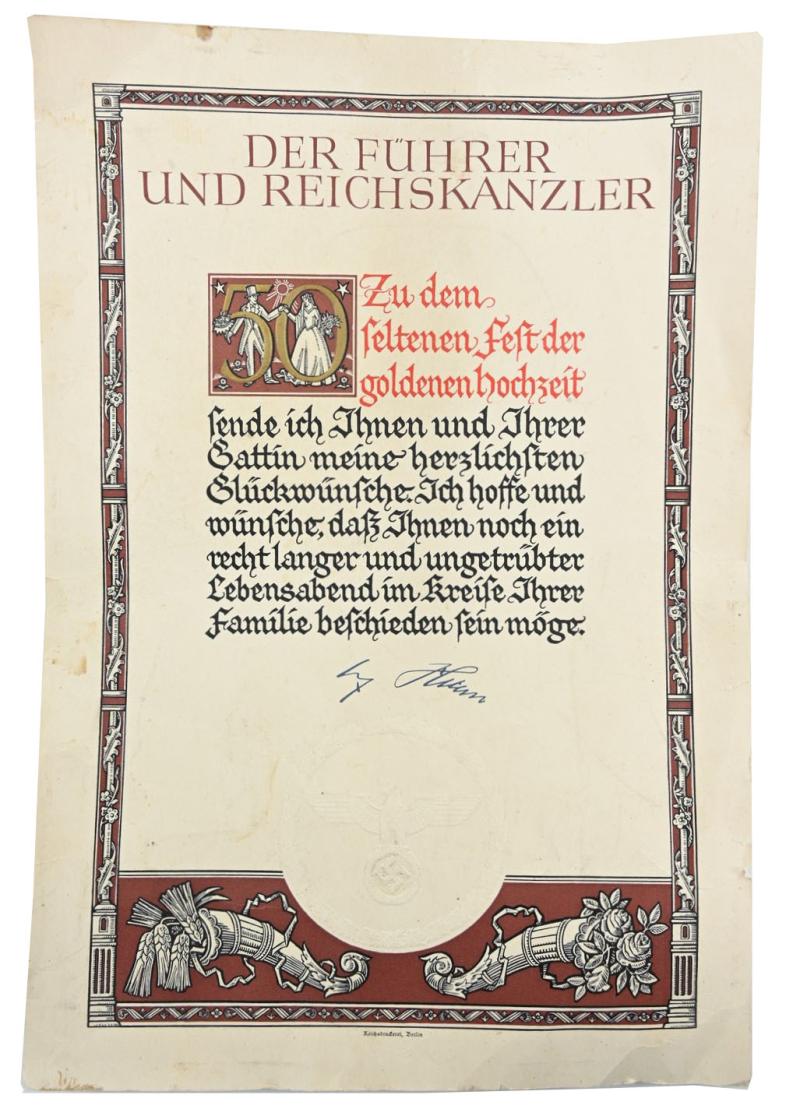 DER FÜHRER
UND REICHSKANZLER
50
Zu dem
seltenen Fest der
goldenen Hochzeit
sende ich Ihnen und Ihrer
Gattin meine herzlichsten
Glückwünsche. Ich hoffe und
wünsche, daß Ihnen noch ein
recht langer und ungetrübter
Lebensabend im Kreise Ihrer
Familie beschieden sein möge.
Reichsdruckerei, Berlin